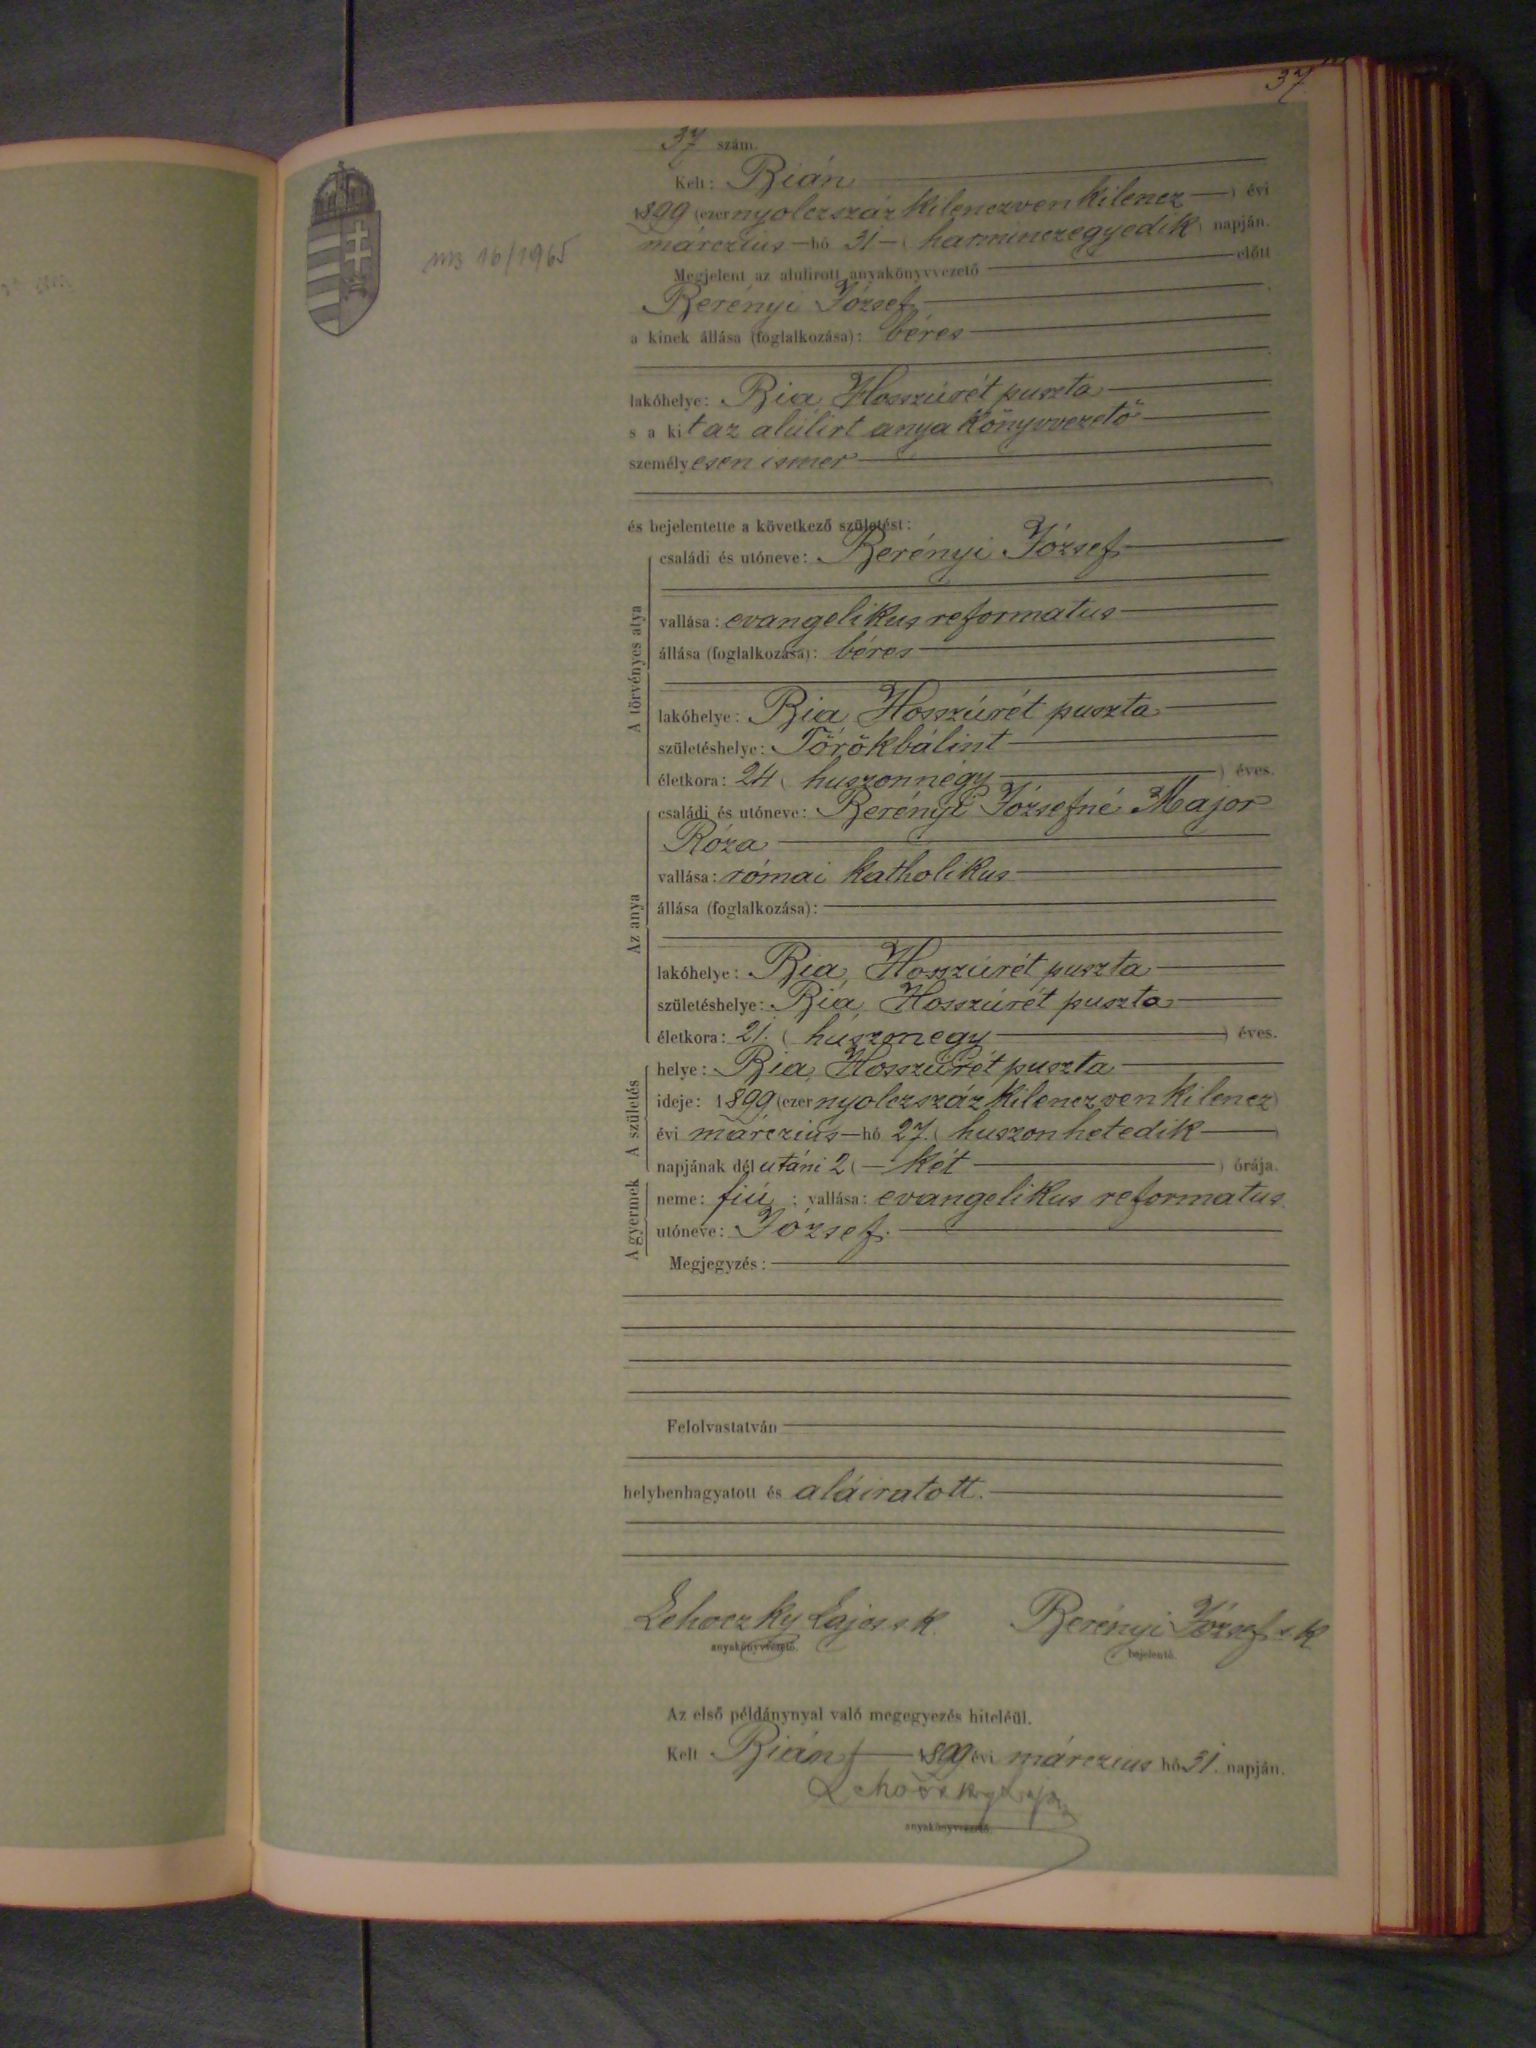 37
37 szám.
Kelt: Bián
1899 (ezer nyolczszáz kilenczven kilencz ) évi
márczius hó 31 ( harminczegyedik ) napján.
16/1965
Megjelent az alulirott anyakönyvvezető előtt
Berényi József
a kinek állása (foglalkozása): béres
lakóhelye: Bia, Hosszúrét puszta
s a kit az alúlirt anyakönyvvezető
személyesen ismer
és bejelentette a következő születést:
A törvényes atya
családi és utóneve: Berényi József
vallása: evangelikus reformatus
állása (foglalkozása): béres
lakóhelye: Bia, Hosszúrét puszta
születéshelye: Törökbálint
életkora: 24 ( huszonnégy ) éves.
Az anya
családi és utóneve: Berényi Józsefné Major
Róza
vallása: római katholikus
állása (foglalkozása):
lakóhelye: Bia, Hosszúrét puszta
születéshelye: Bia, Hosszúrét puszta
életkora: 21. ( húszonegy ) éves.
A születés
helye: Bia, Hosszúrét puszta
ideje: 1899 (ezer nyolczszáz kilenczven kilencz)
évi márczius hó 27. ( huszonhetedik )
napjának délutáni 2 ( két ) órája.
A gyermek
neme: fiú ; vallása: evangelikus reformatus.
utóneve: József.
Megjegyzés:
Felolvastatván
helybenhagyatott és aláiratott.
Lehoczky Lajos s k. Berényi József s k
anyakönyvvezető. bejelentő.
Az első példánynyal való megegyezés hiteléül.
Kelt Bián 1899 évi márczius hó 31. napján.
Lehoczky Lajos
anyakönyvvezető.